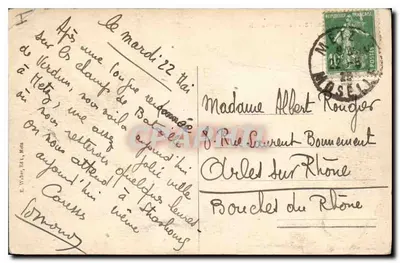 I
le mardi 22 Mai
Après une longue randonnée
sur les champs de Bataille
de Verdun, nous voilà aujourd'hui
à Metz, une assez jolie ville
où nous restons quelques heures
on nous attend à Strasbourg
aujourd'hui même
Caresses
REPUBLIQUE FRANÇAISE
METZ
MOSELLE
Madame Albert Rougier
8. Rue Laurent Bonnement
Arles sur Rhône
Bouches du Rhône
CARTES POSTALES